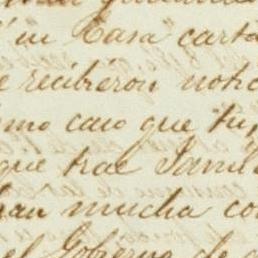 in Casa carta
e recibieron notic
mo caso que tu
que trae Jamil
han mucha co
el Gobierno de